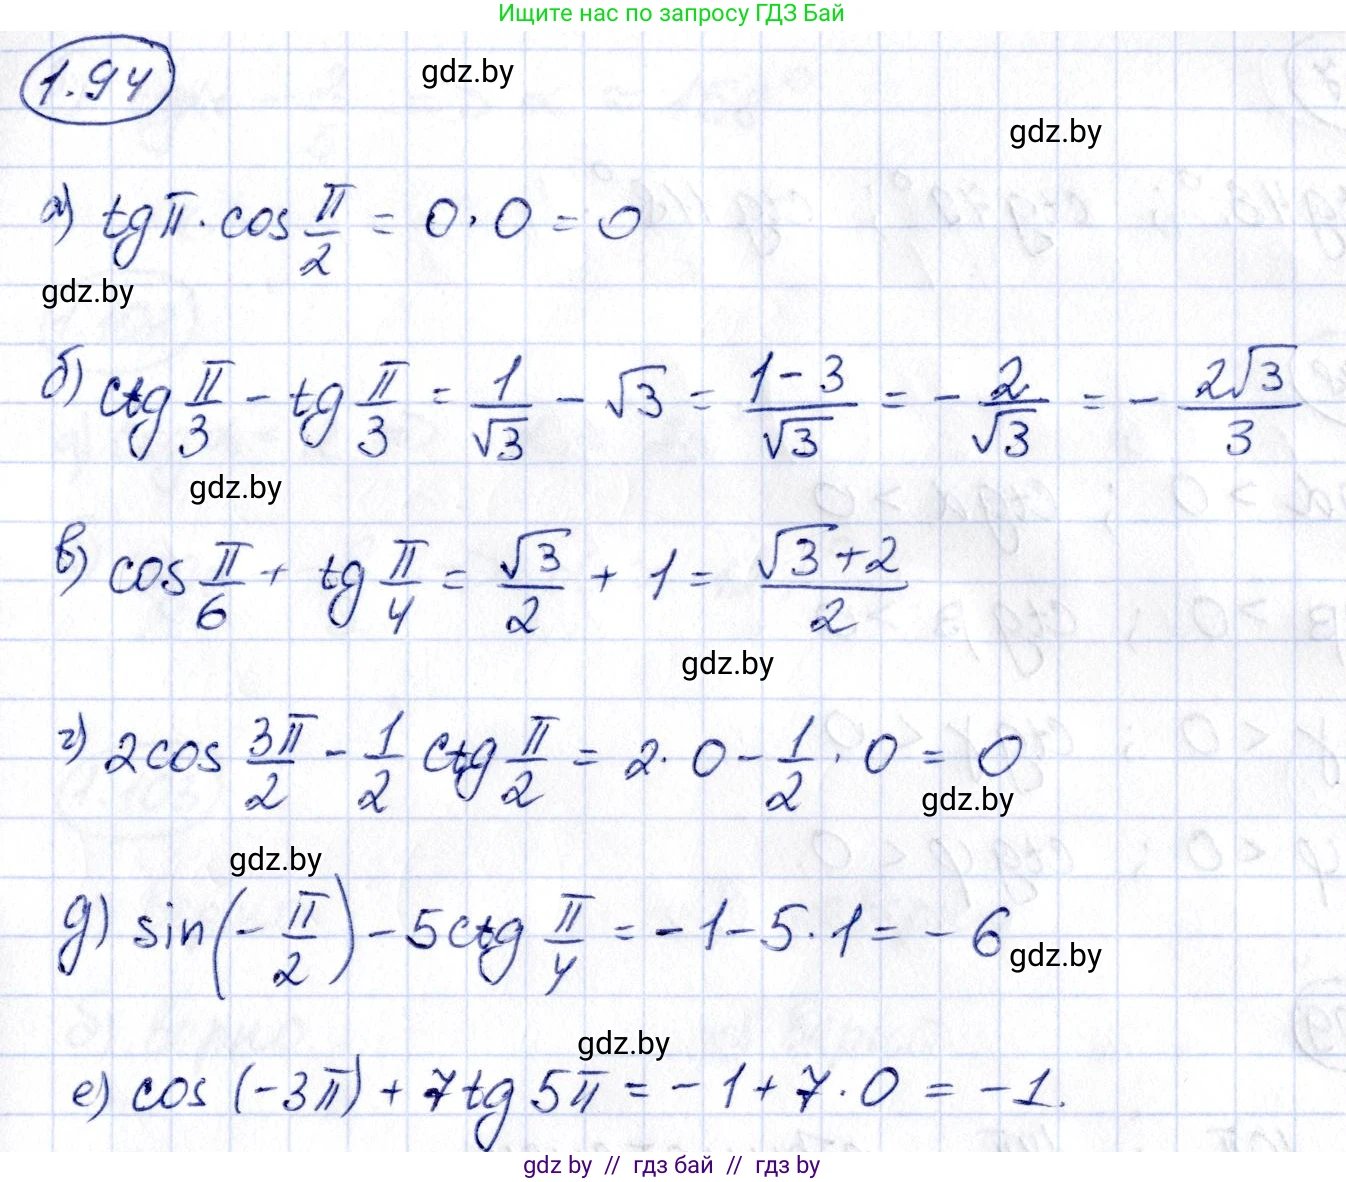 Ищите нас по запросу ГДЗ Бай
1.94
gdz.by
gdz.by
а) tg π · cos π/2 = 0 · 0 = 0
gdz.by
б) ctg π/3 - tg π/3 = 1/√3 - √3 = (1-3)/√3 = - 2/√3 = - 2√3/3
gdz.by
в) cos π/6 + tg π/4 = √3/2 + 1 = (√3+2)/2
gdz.by
г) 2cos 3π/2 - 1/2 ctg π/2 = 2 · 0 - 1/2 · 0 = 0
gdz.by
gdz.by
д) sin(- π/2) - 5ctg π/4 = -1 - 5 · 1 = - 6
gdz.by
gdz.by
е) cos (-3π) + 7tg 5π = -1 + 7 · 0 = -1.
gdz by // гдз бай // гдз by